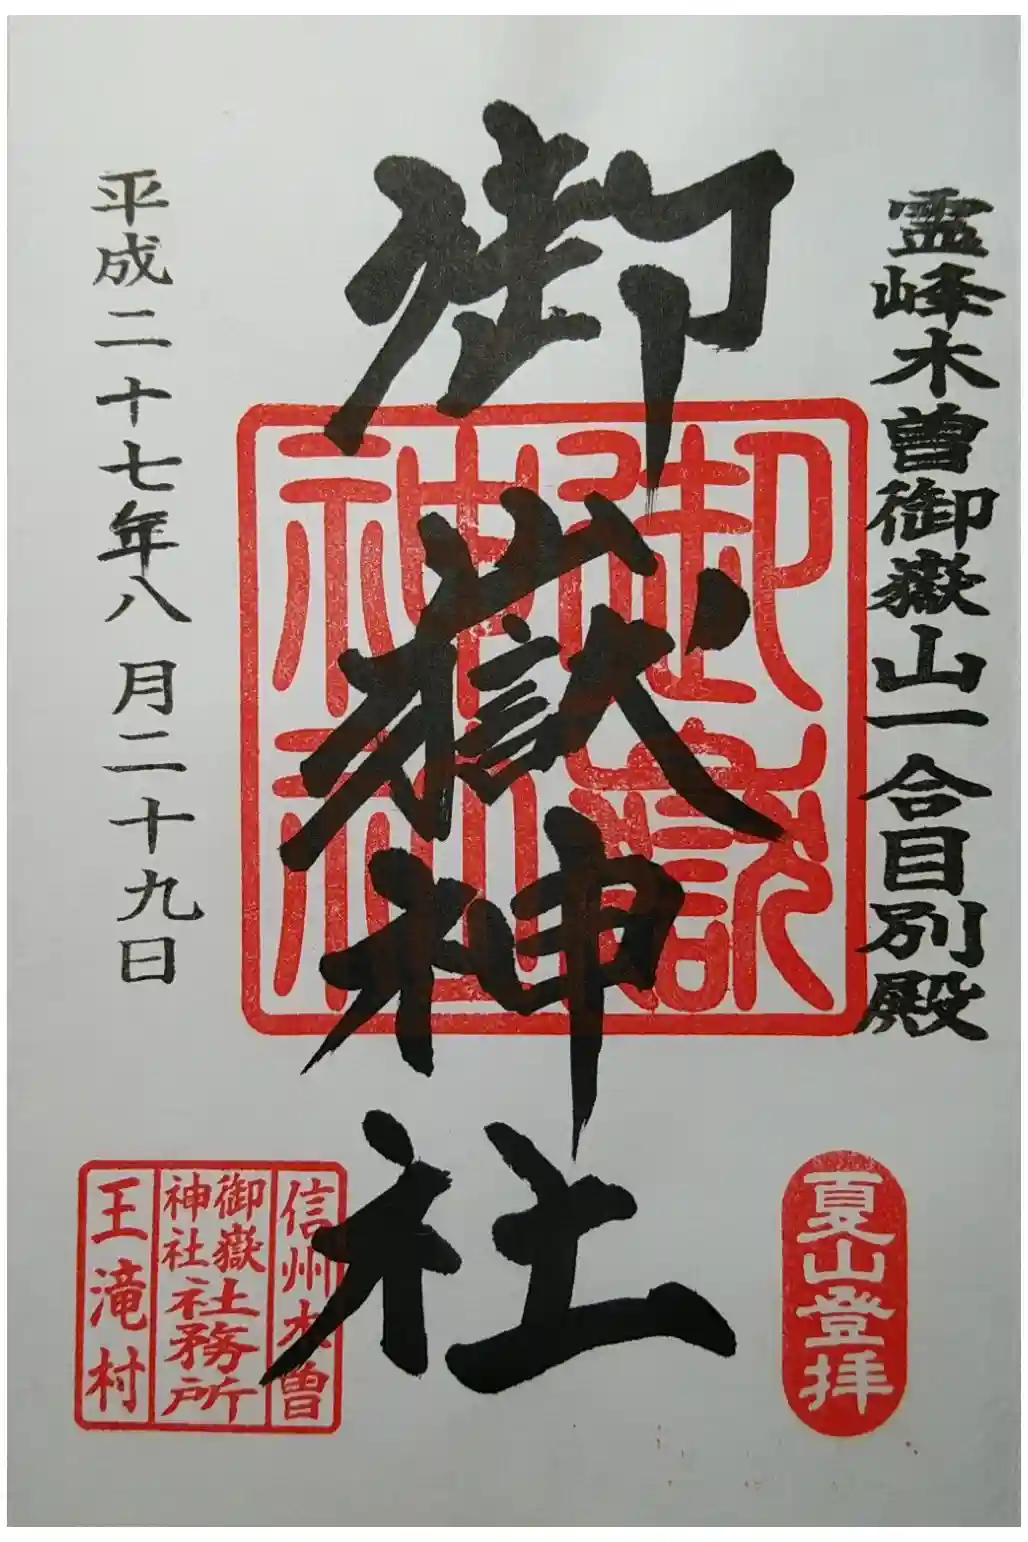 霊峰木曽御嶽山一合目別殿
御嶽神社
御嶽
神社
平成二十七年八月二十九日
夏山登拝
信州木曽
御嶽神社社務所
王滝村